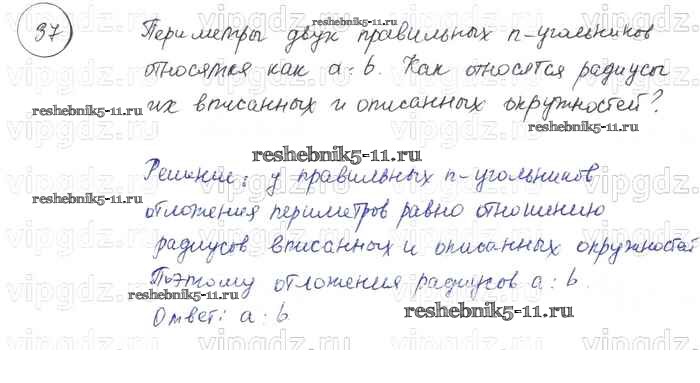 37
Периметры двух правильных n-угольников
относятся как a:b. Как относятся радиусы
их вписанных и описанных окружностей?
Решение: у правильных n-угольников
отложения периметров равно отношению
радиусов вписанных и описанных окружностей
Поэтому отложения радиусов a:b.
Ответ: a:b.
reshebnik5-11.ru
reshebnik5-11.ru
reshebnik5-11.ru
reshebnik5-11.ru
reshebnik5-11.ru
reshebnik5-11.ru
reshebnik5-11.ru
vipgdz.ru